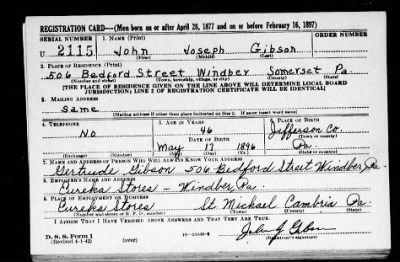 REGISTRATION CARD—(Men born on or after April 28, 1877 and on or before February 16, 1897)
SERIAL NUMBER
1. NAME (Print)
ORDER NUMBER
U 2115
John Joseph Gibson
(First) (Middle) (Last)
2. PLACE OF RESIDENCE (Print)
506 Bedford Street Windber Somerset Pa.
(Number and street) (Town, township, village, or city) (County) (State)
[THE PLACE OF RESIDENCE GIVEN ON THE LINE ABOVE WILL DETERMINE LOCAL BOARD
JURISDICTION; LINE 2 OF REGISTRATION CERTIFICATE WILL BE IDENTICAL]
3. MAILING ADDRESS
Same
[Mailing address if other than place indicated on line 2. If same insert word same]
4. TELEPHONE
5. AGE IN YEARS
6. PLACE OF BIRTH
No
46
Jefferson Co.
DATE OF BIRTH
(Town or county)
May 17 1896
Pa.
(Exchange) (Number) (Mo.) (Day) (Yr.) (State or country)
7. NAME AND ADDRESS OF PERSON WHO WILL ALWAYS KNOW YOUR ADDRESS
Gertrude Gibson 506 Bedford Street Windber, Pa.
8. EMPLOYER'S NAME AND ADDRESS
Eureka Stores - Windber, Pa.
9. PLACE OF EMPLOYMENT OR BUSINESS
Eureka Stores St. Michael Cambria Pa.
(Number and street or R. F. D. number) (Town) (County) (State)
I AFFIRM THAT I HAVE VERIFIED ABOVE ANSWERS AND THAT THEY ARE TRUE.
D. S. S. Form 1
(Revised 4-1-42) (over)
John J Gibson
(Registrant's signature)